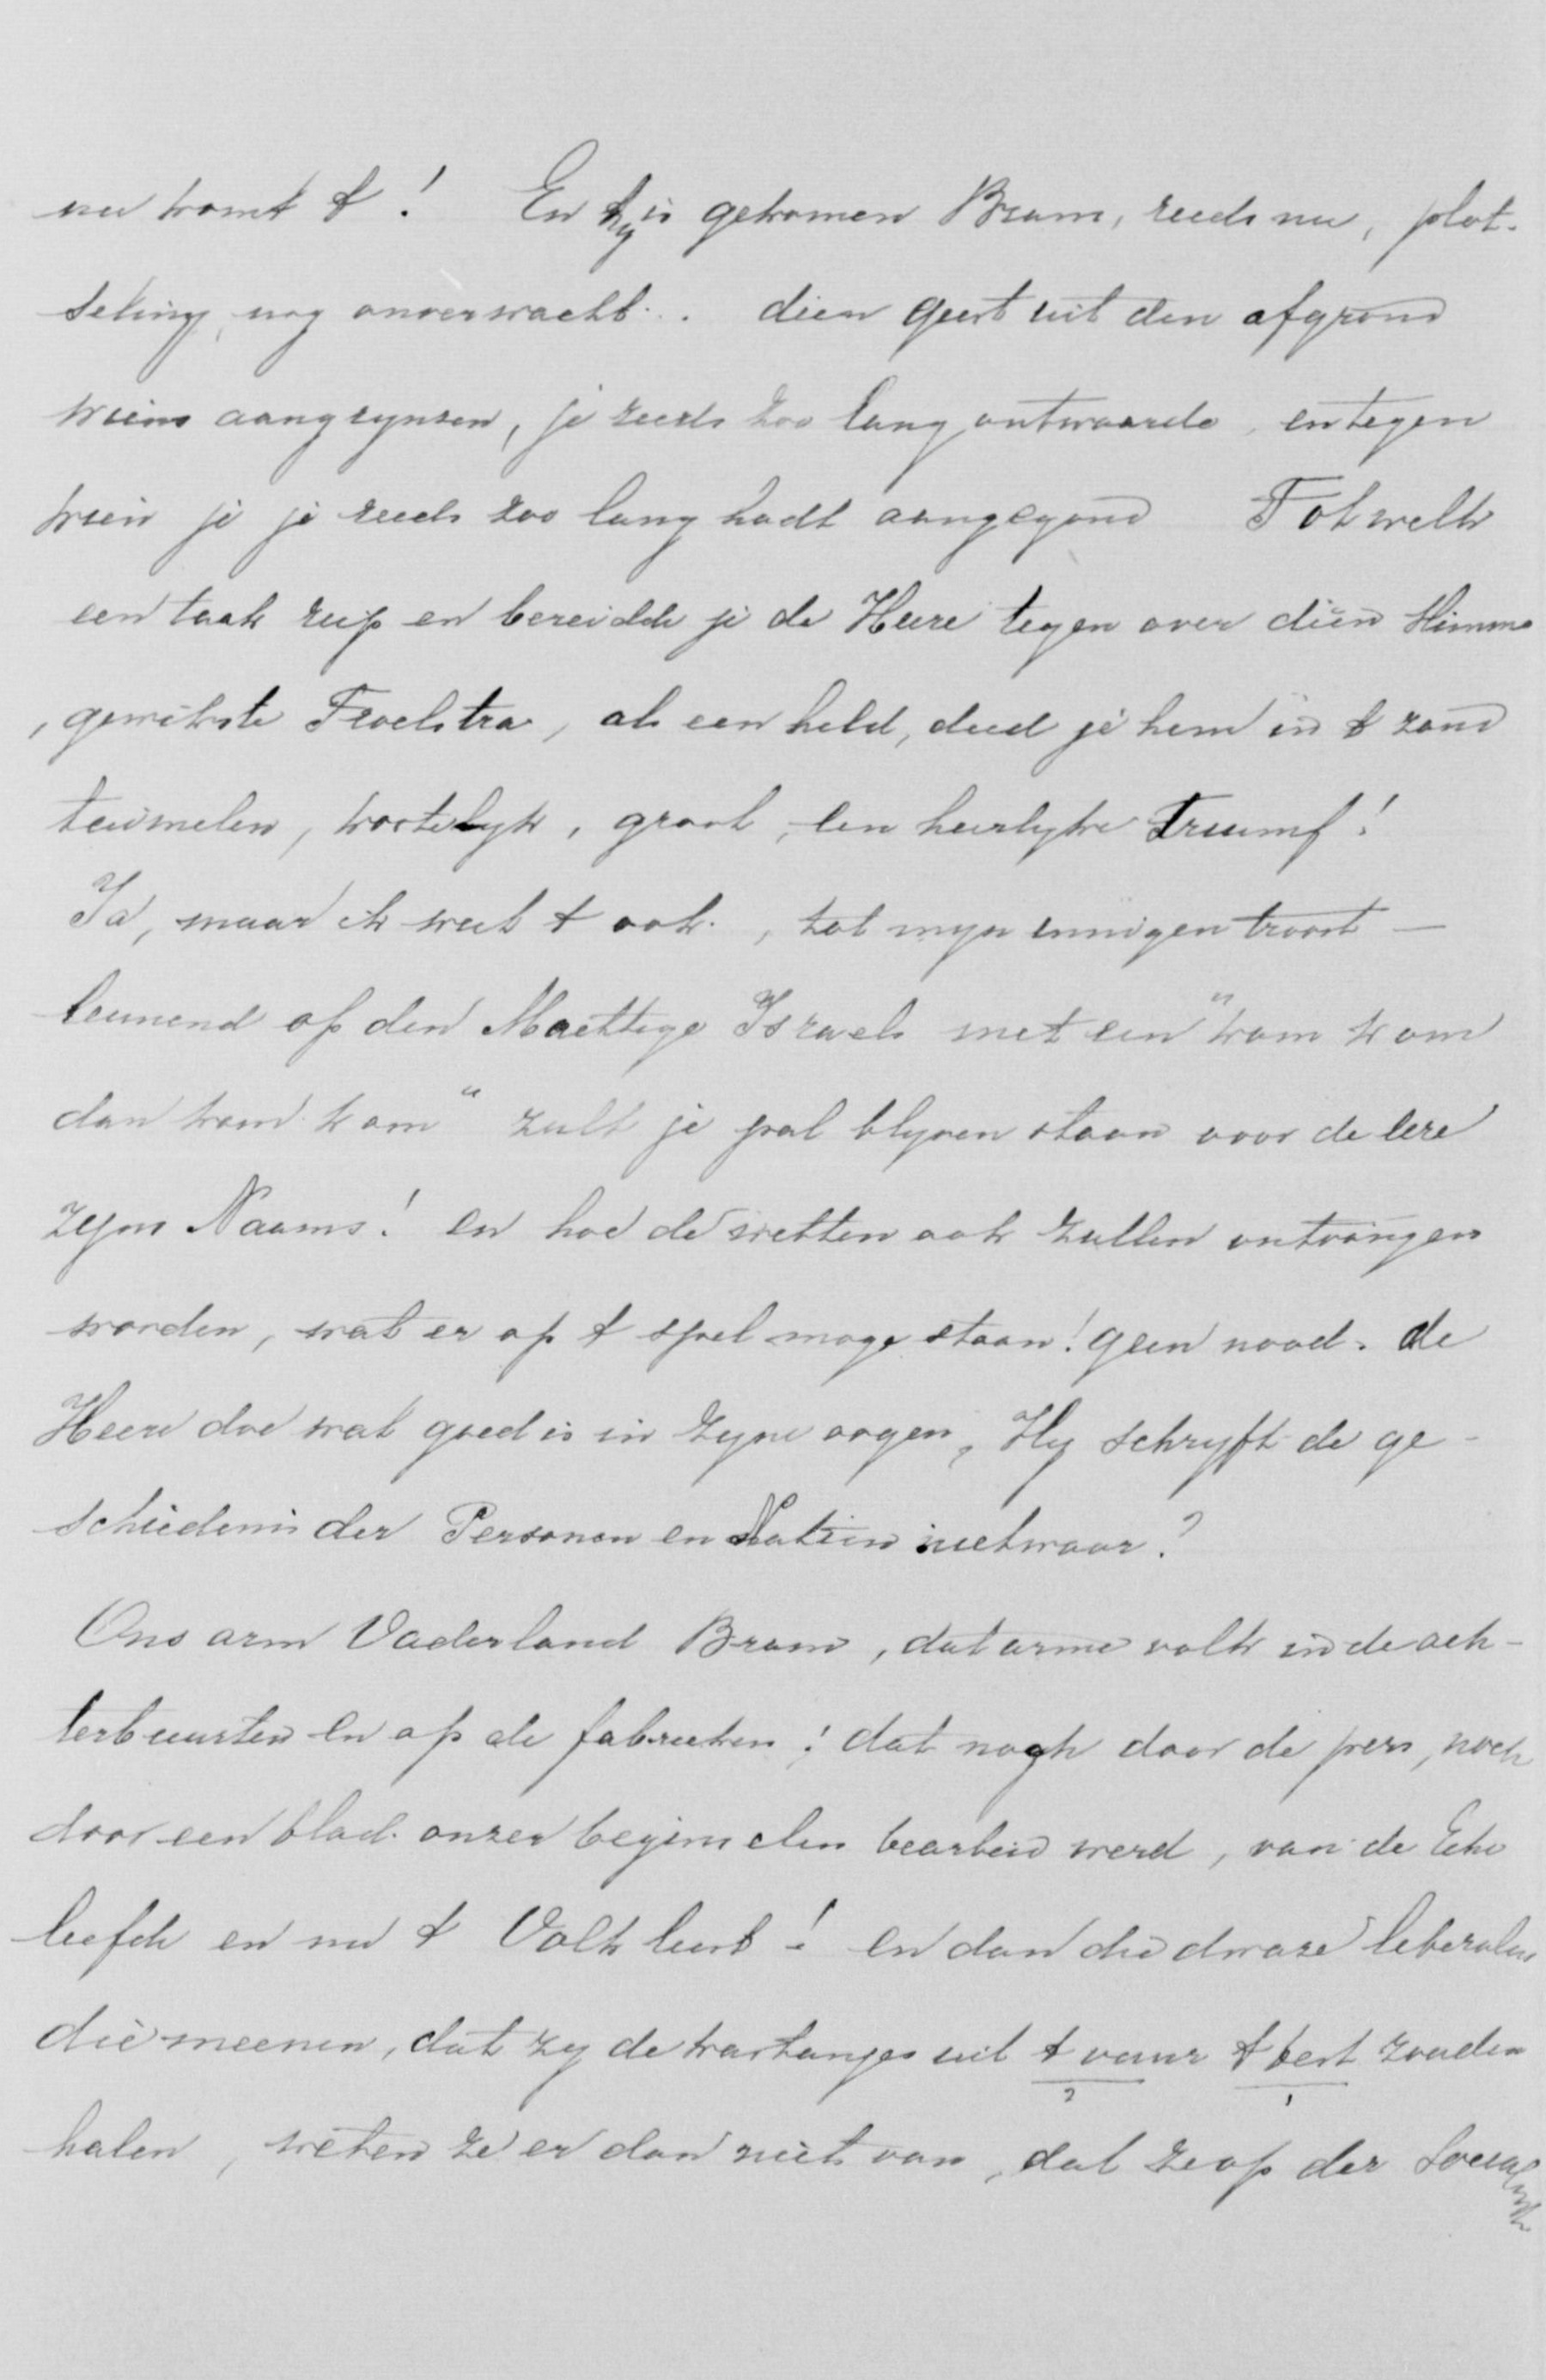 nu komt 't! En hy is gekomen Bram, reeds nu, plot-
seling, nog onverwacht... dien geest uit den afgrond
wiens aangrynzen, je reeds zoo lang ontwaarde, en tegen
wien je je reeds zoo lang hadt aangegord Tot welk
een taak riep en bereidde je de Heere tegen over dien
, gewikste Troelstra, als een held, deed je hem in 't zand
tuimelen, kostelyk, groot, een heerlyke Triumf!
Ja, maar ik weet 't ook, tot myn innigen troost —
leunend op den Machtige Israels met een "kom kom
dan kom kom" zult je pal blyven staan voor de eere
zyns Naams! en hoe de wetten ook zullen ontvangen
worden, wat er op 't spel moge staan! geen nood. de
Heere doe wat goed is in zyne oogen, Hy schryft de ge-
schiedenis der Personen en Natien nietwaar?
Ons arm Vaderland Bram, dat arme volk in de ach-
terbuurten en op de fabrieken! dat noch door de pers, noch
door een blad onzer beginselen bearbeid werd, van de Echo
leefde en nu 't Volk leest! en dan die dwaze liberalen
die meenen, dat zy de kastanjes uit 't vuur 't best zouden
2 1
halen, weten ze er dan niets van, dat ze op der